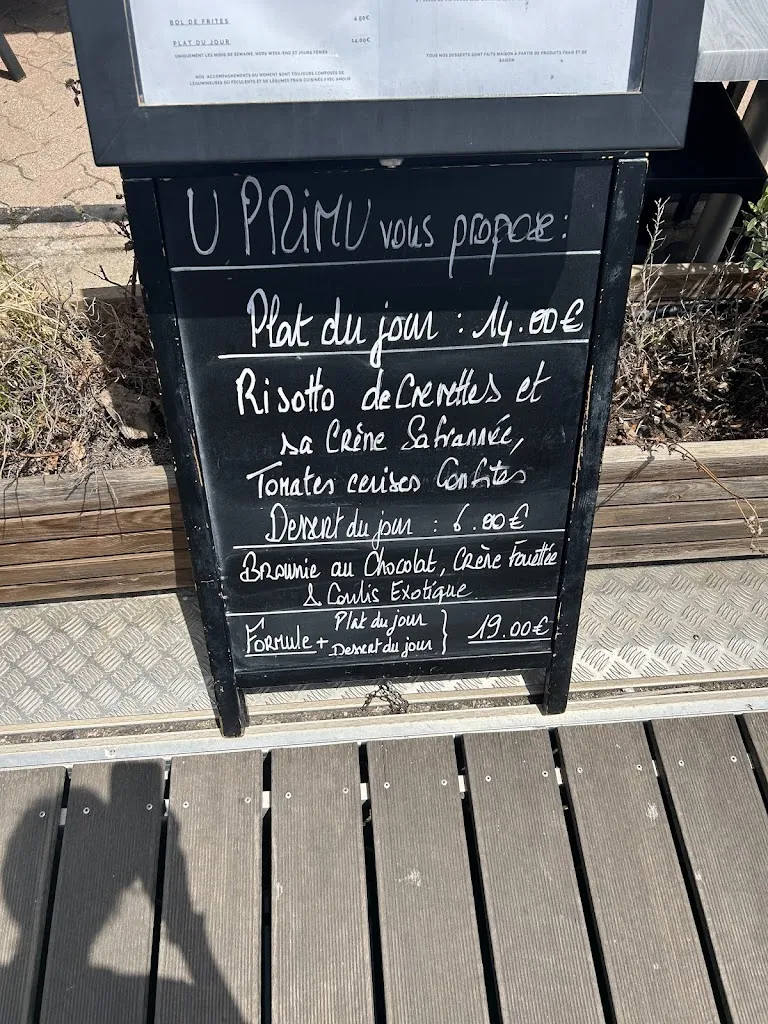 BOL DE FRITES 4.50€
PLAT DU JOUR 14.00€
UNIQUEMENT LES MIDIS DE SEMAINE, HORS WEEK-END ET JOURS FÉRIÉS
NOS ACCOMPAGNEMENTS DU MOMENT SONT TOUJOURS COMPOSÉS DE
LÉGUMINEUSES OU FÉCULENTS ET DE LÉGUMES FRAIS CUISINÉS AVEC AMOUR
TOUS NOS DESSERTS SONT FAITS MAISON À PARTIR DE PRODUITS FRAIS ET DE
SAISON
U PRIMU vous propose :
Plat du jour : 14.00€
Risotto de Crevettes et
sa Crème Safrannée,
Tomates cerises Confites
Dessert du jour : 6.00€
Brownie au Chocolat, Crème Fouettée
& Coulis Exotique
Plat du jour
Formule + Dessert du jour } 19.00€